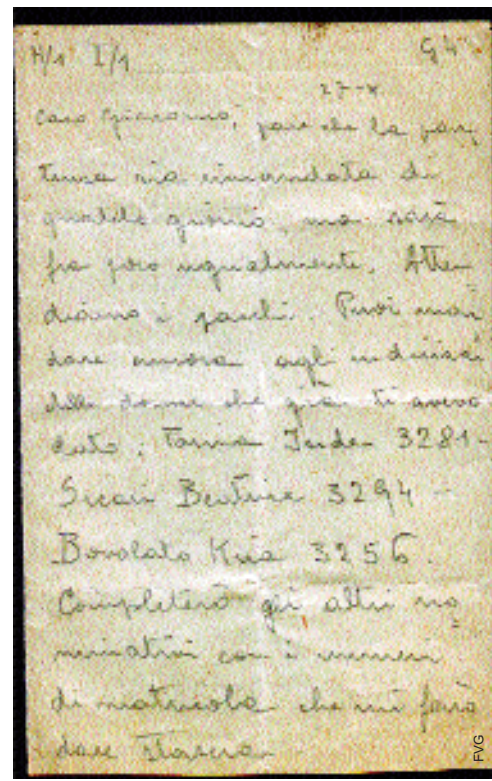 27-X
caro Giacomo, pare che la par
tenza sia rimandata di
qualche giorno, ma sarà
fra poco ugualmente. Atten
diamo i pacchi. Puoi man
dare ancora agli indirizzi
delle donne che già ti avevo
dato: Tanina 3281-
Beatrice 3294-
3256.
Completerò gli altri no
minativi con i numeri
di matricola che mi farò
dare stasera
FVG